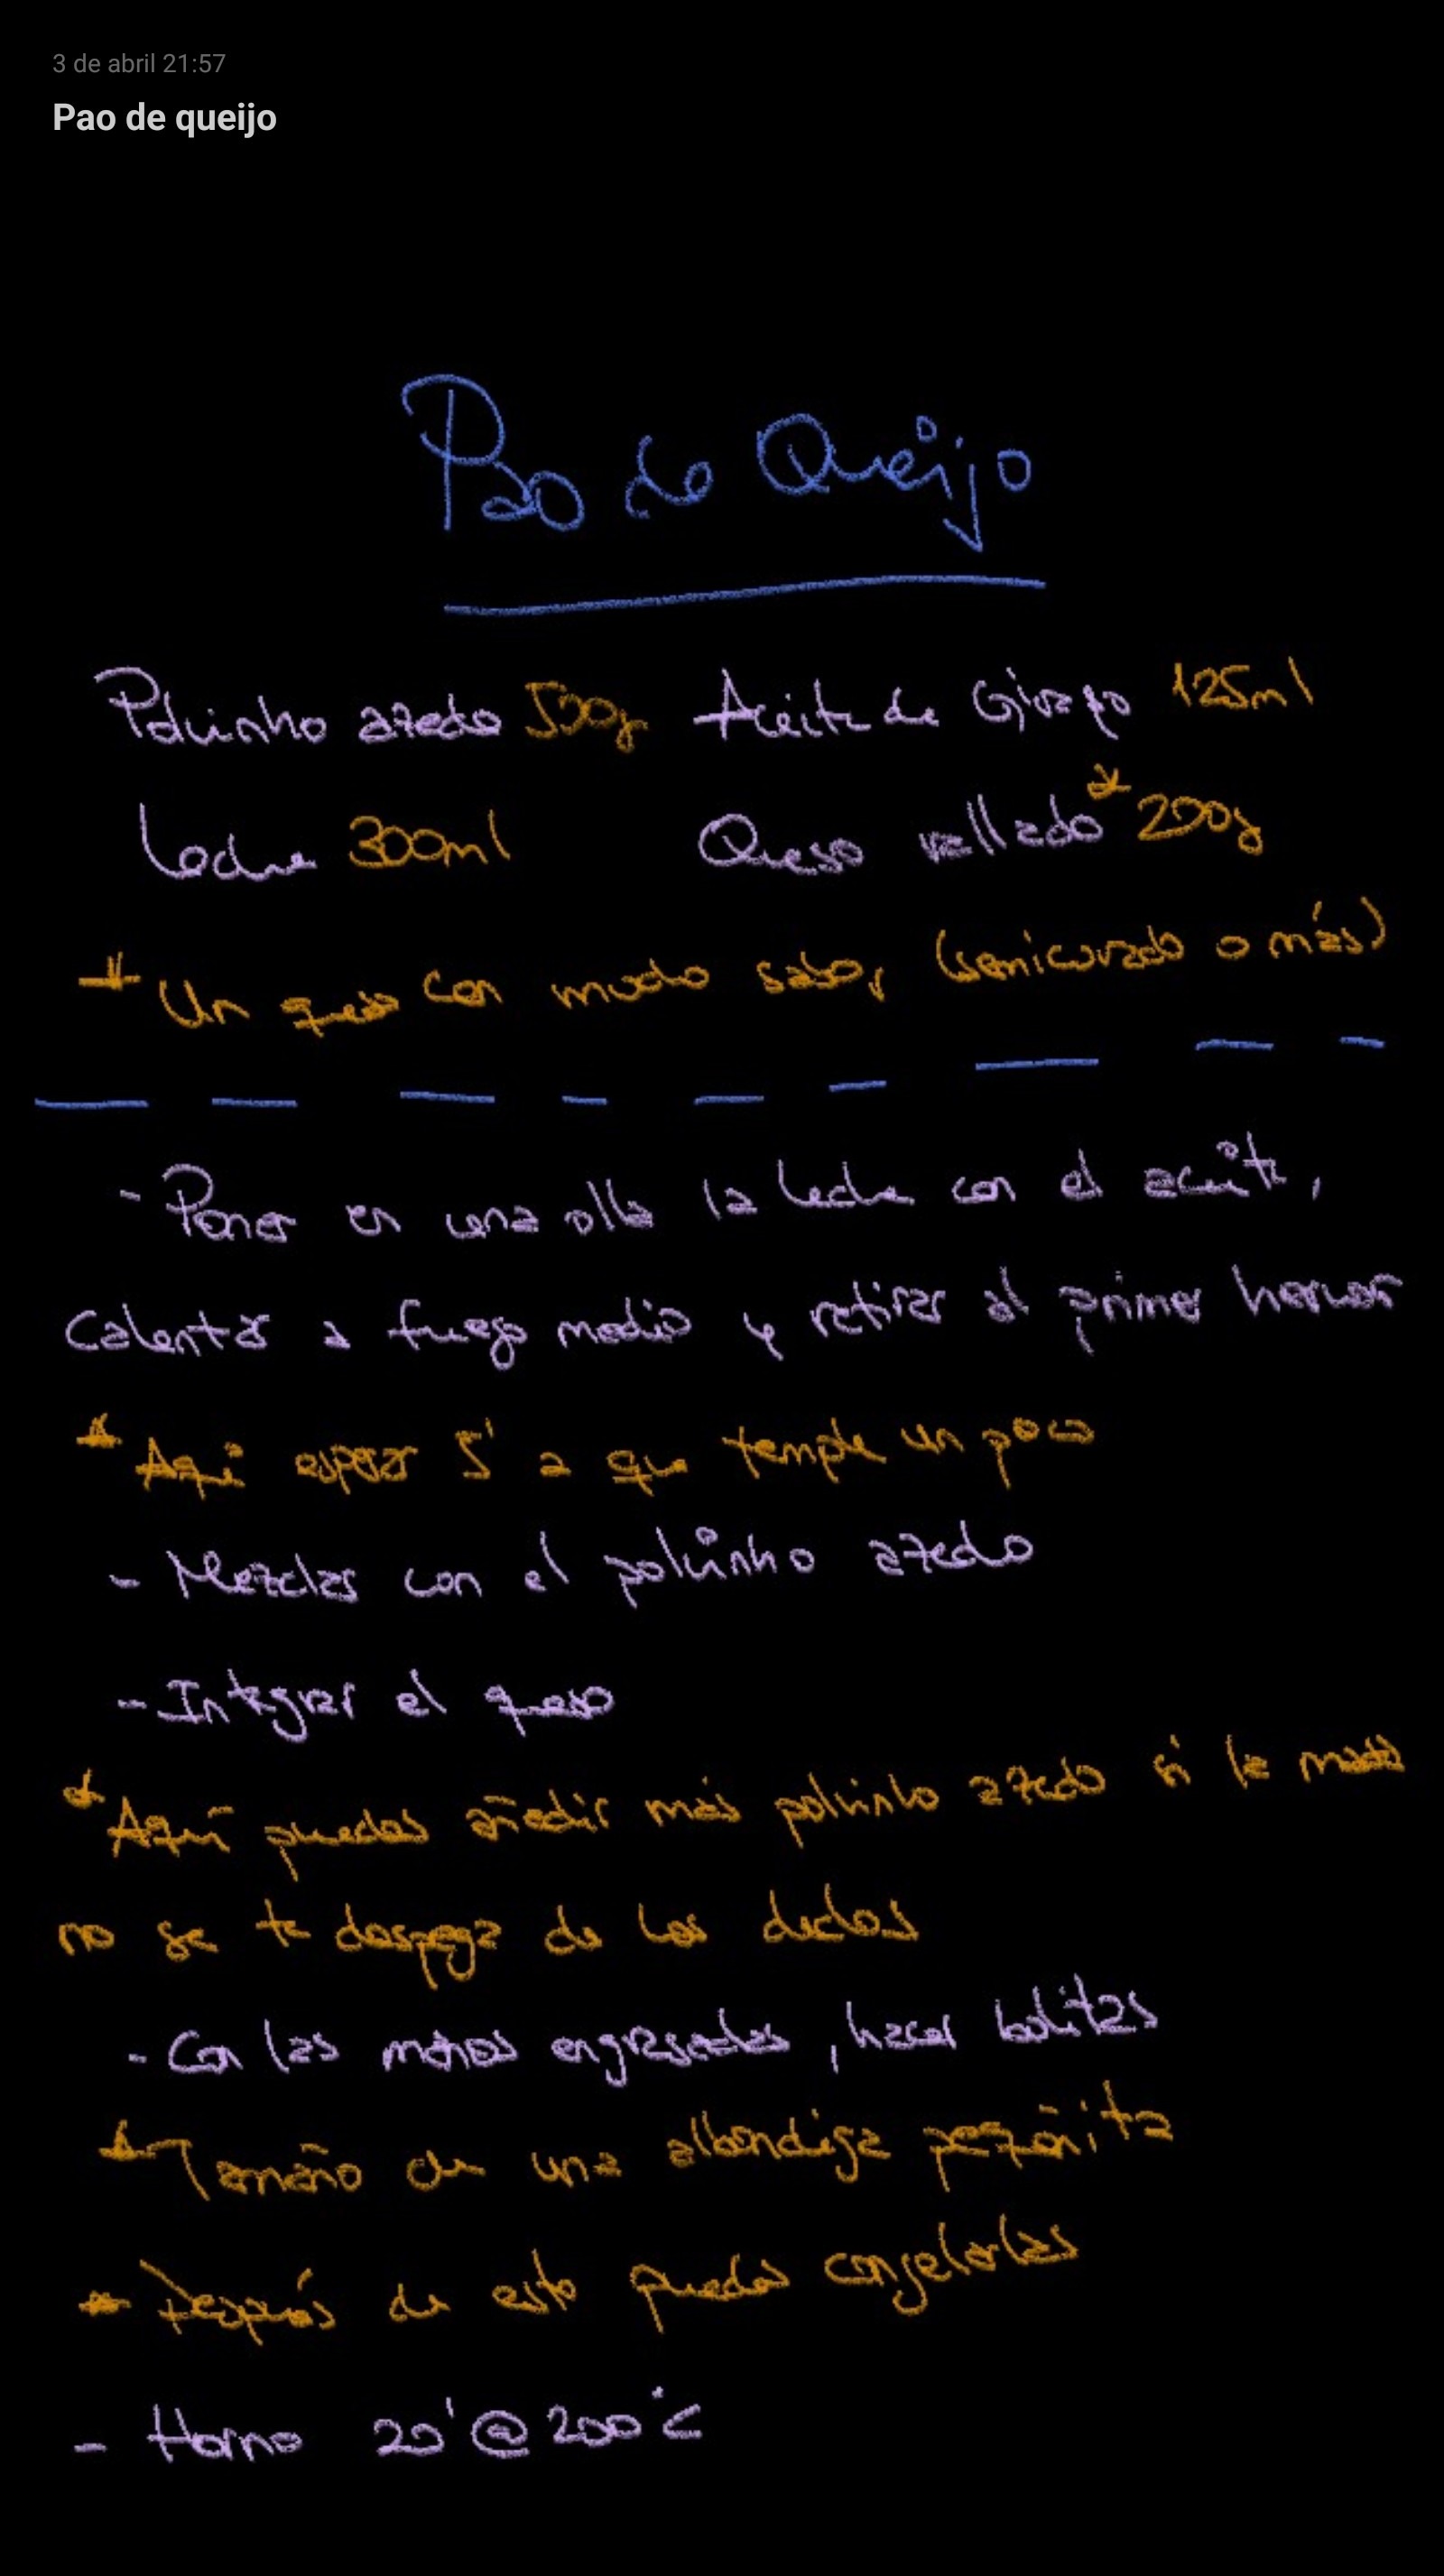 3 de abril 21:57
Pao de queijo
Pao de Queijo
Polvinho azedo 500g Aceite de Girasol 125ml
Leche 300ml Queso rallado* 200g
* Un queso con mucho sabor (semicurado o más)
- Poner en una olla la leche con el aceite,
Calentar a fuego medio y retirar al primer hervor
* Aquí esperar 5' a que temple un poco
- Mezclar con el polvinho azedo
- Integrar el queso
* Aquí puedes añadir más polvinho azedo si la masa
no se te despega de los dedos
- Con las manos engrasadas, hacer bolitas
* Tamaño de una albóndiga pequeñita
* Después de esto puedes congelarlas
- Horno 20' @ 200°C